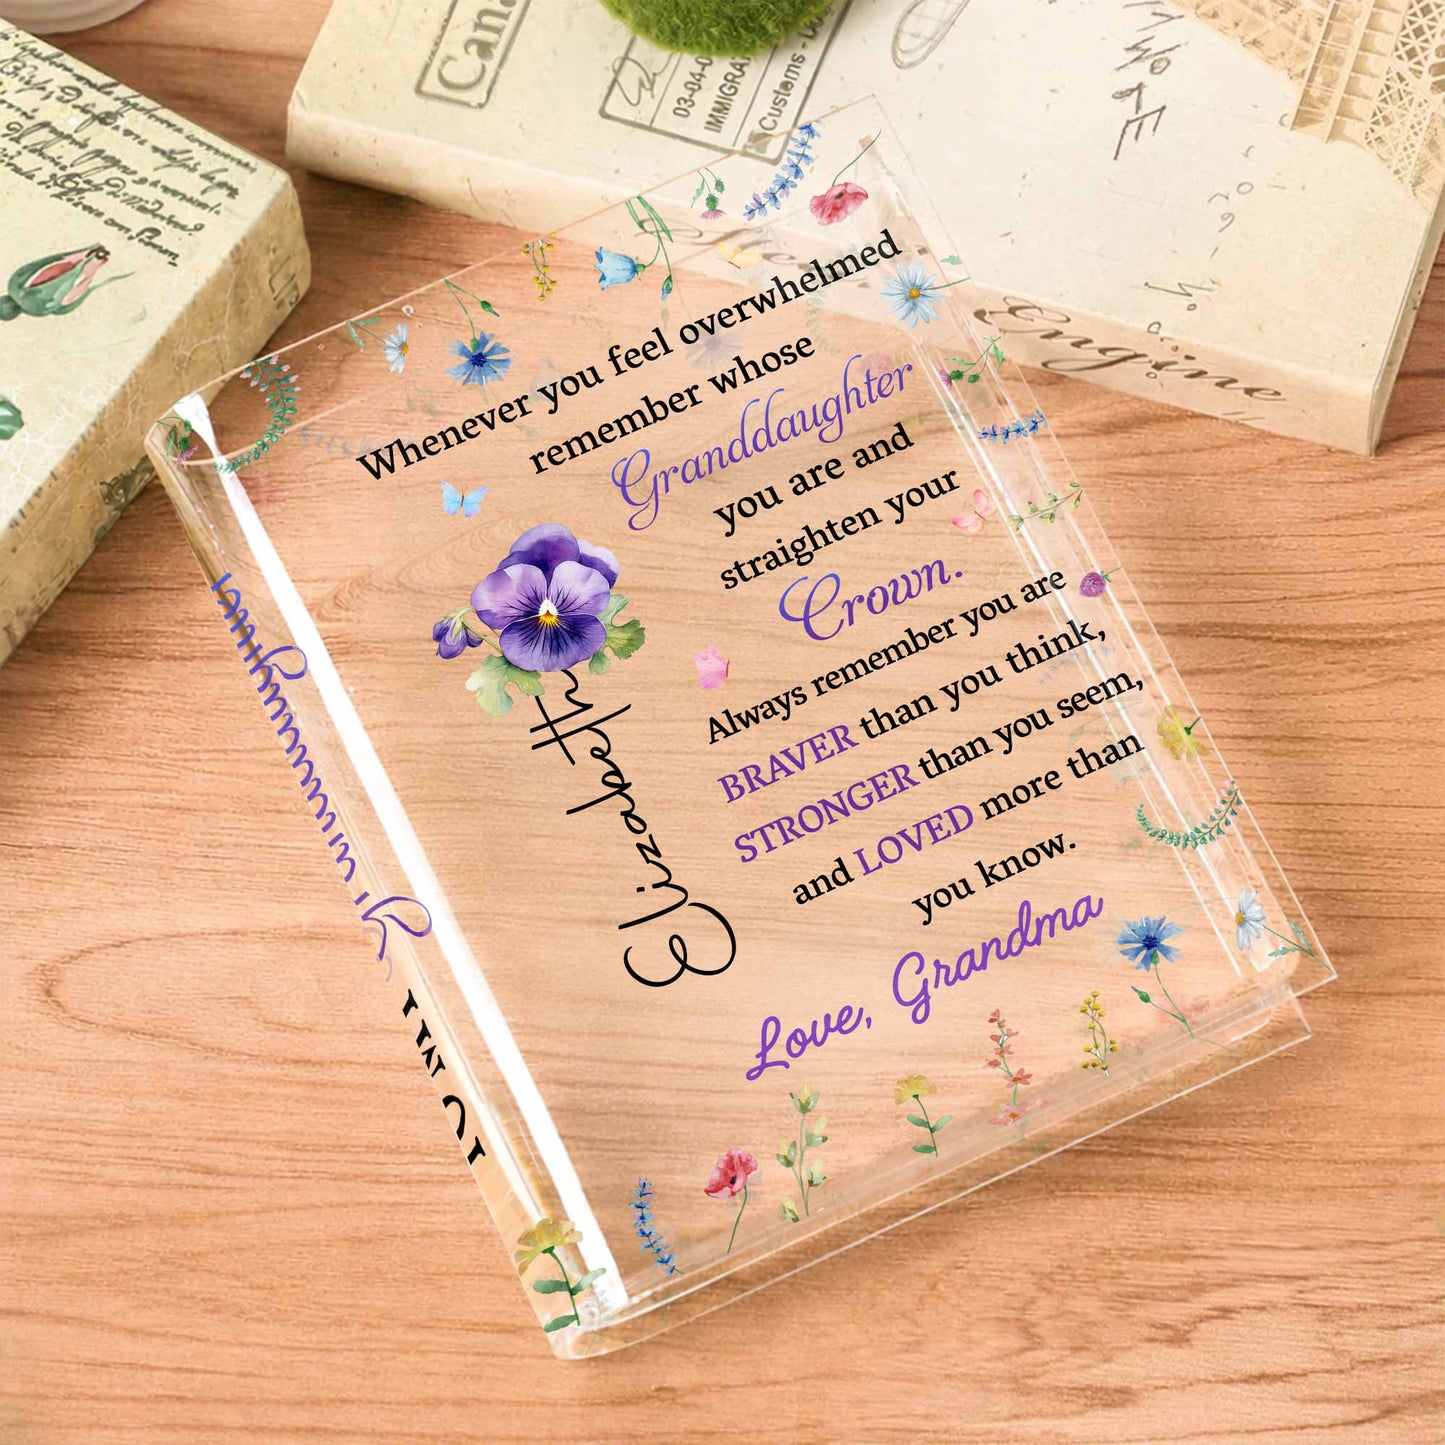 Whenever you feel overwhelmed
remember whose
Granddaughter
you are and
straighten your
Crown.
Always remember you are
BRAVER than you think,
STRONGER than you seem,
and LOVED more than
you know.
Love, Grandma
Elizabeth
Engine
03-04-0
IMMIGRA
Customs -